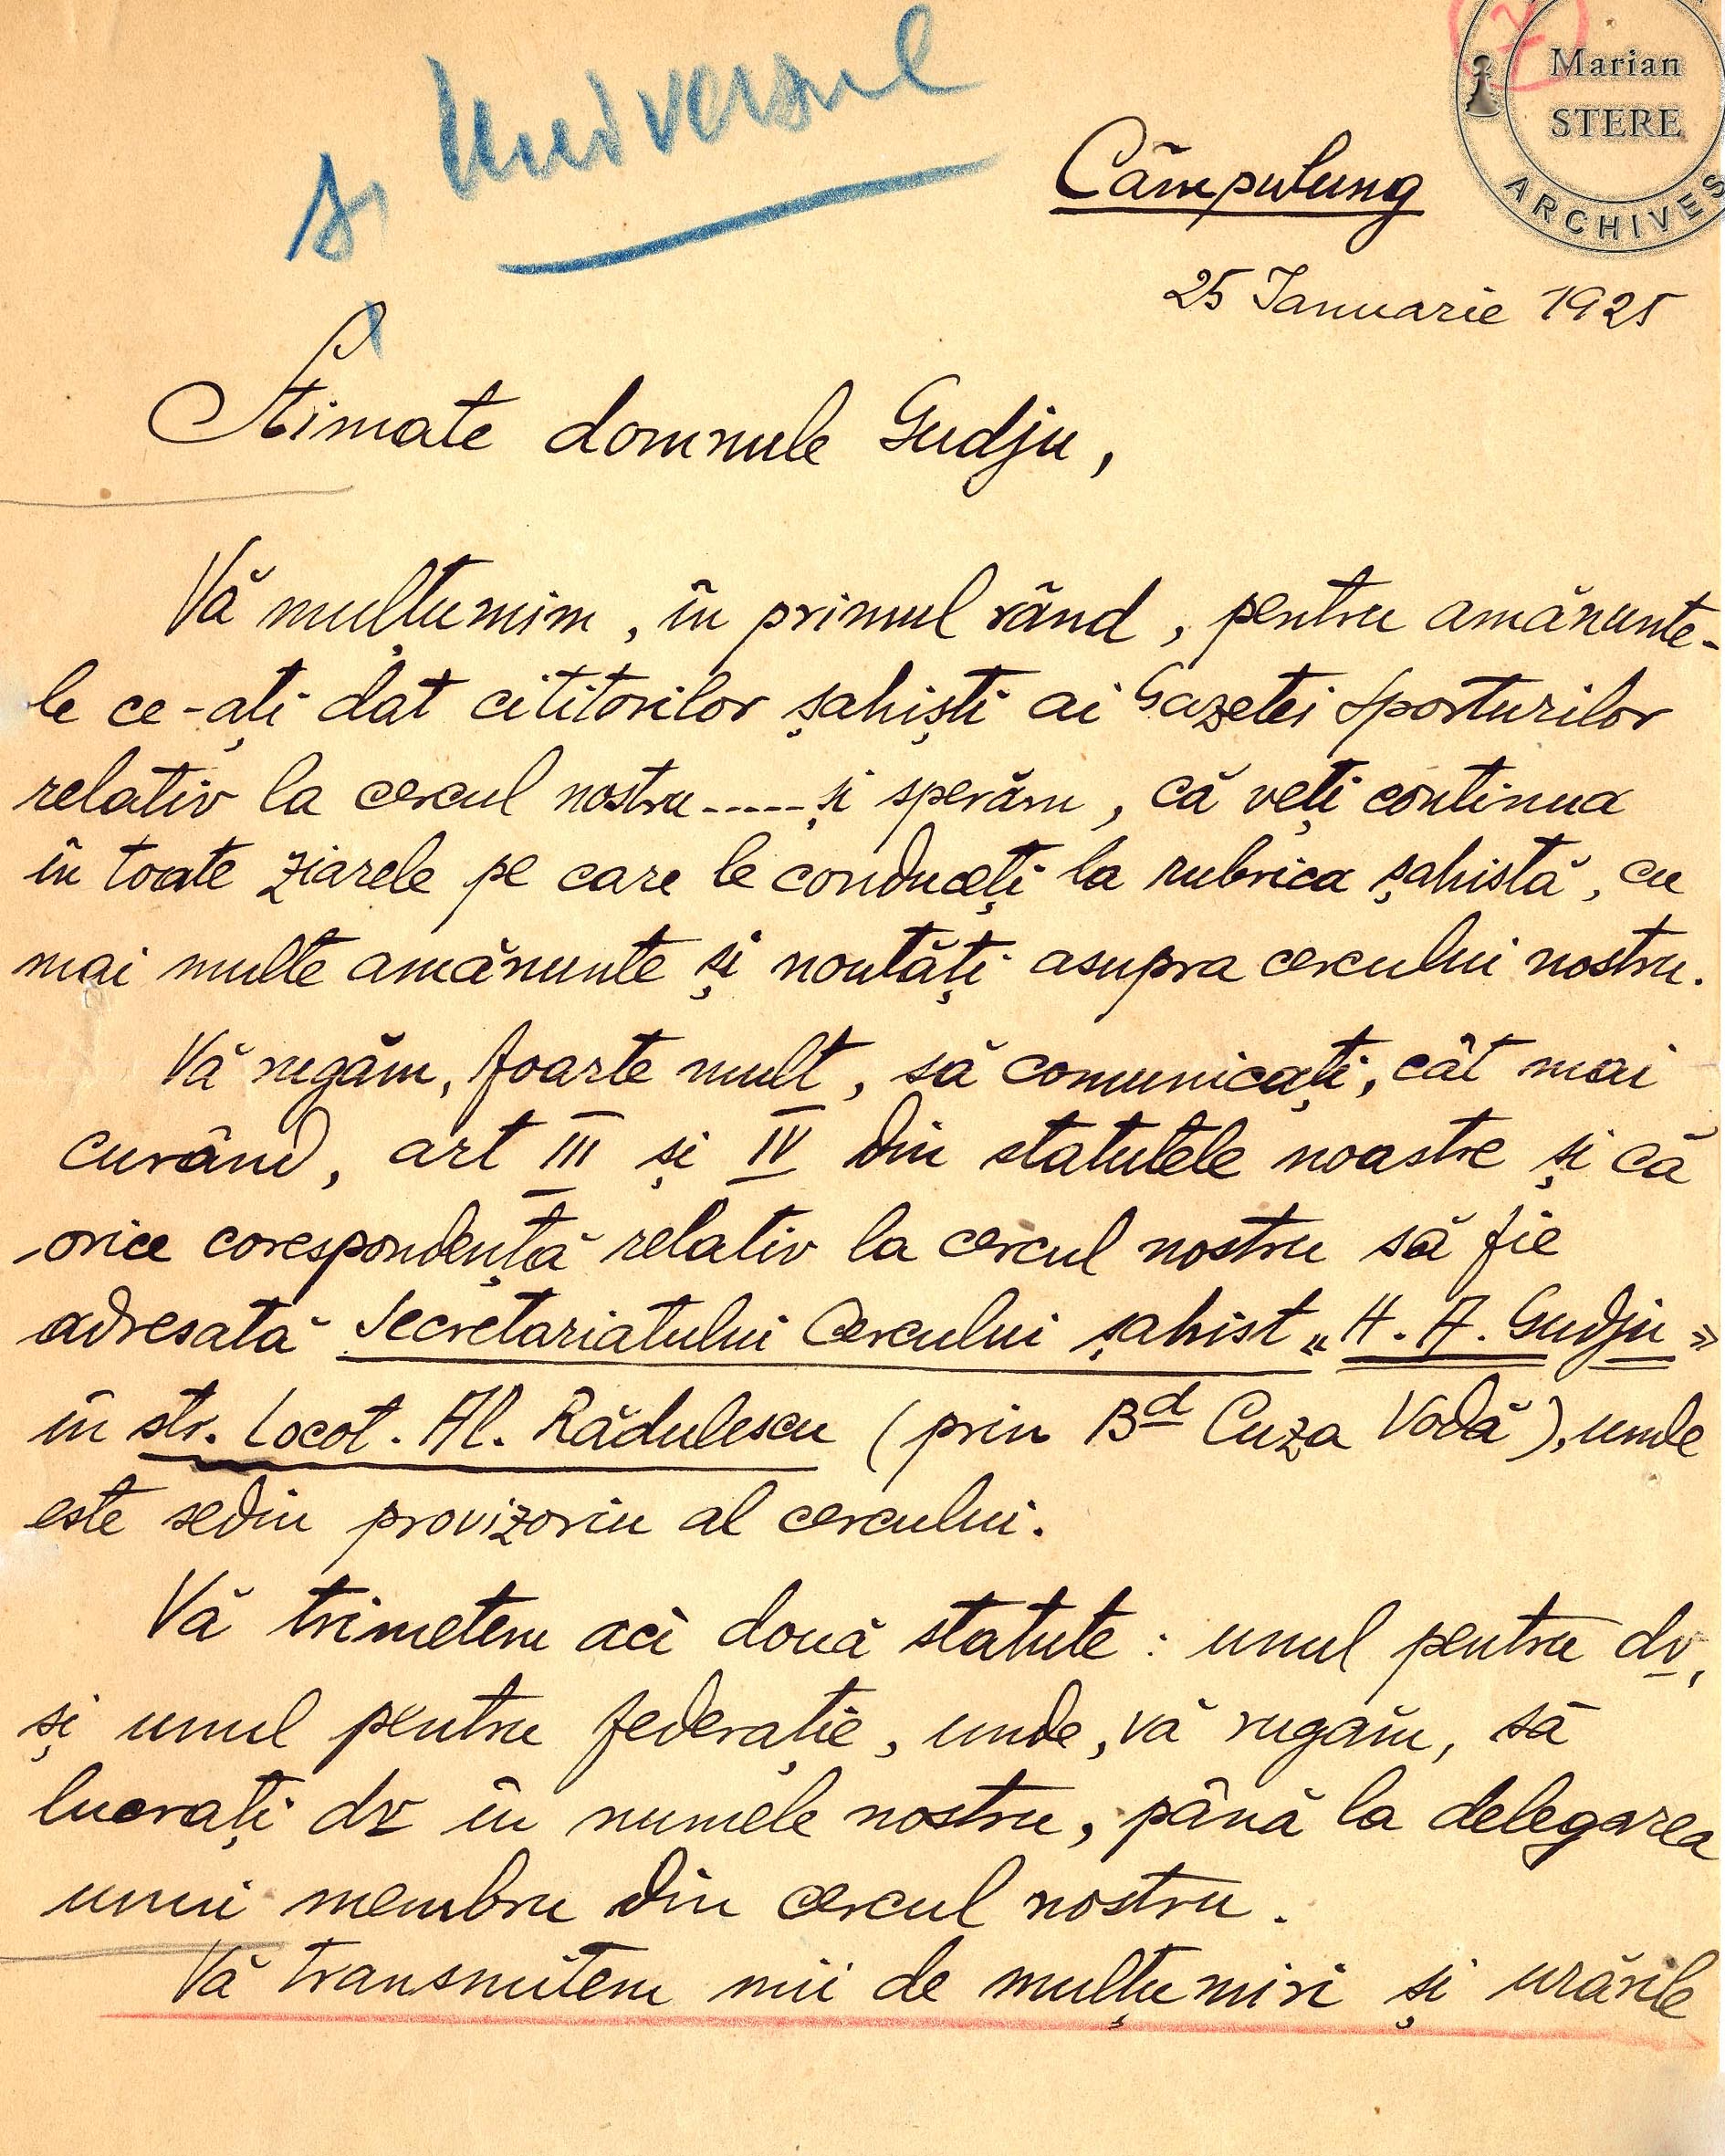 și Universul
Marian
STERE
ARCHIVES
Câmpulung
25 Ianuarie 1925
Stimate domnule Gudju,
Vă mulțumim, în primul rând, pentru amănunte-
le ce-ați dat cititorilor șahiști ai Gazetei Sporturilor
relativ la cercul nostru ----- și sperăm, că veți continua
în toate ziarele pe care le conduceți la rubrica șahistă, cu
mai multe amănunte și noutăți asupra cercului nostru.
Vă rugăm, foarte mult, să comunicați, cât mai
curând, art III și IV din statutele noastre și că
orice corespondență relativ la cercul nostru să fie
adresată Secretariatului Cercului șahist „H. A. Gudju"
în str. Locot. Al. Rădulescu (prin Bd Cuza Vodă), unde
este sediu provizoriu al cercului.
Vă trimetem aci două statute: unul pentru dv,
și unul pentru federație, unde, vă rugăm, să
lucrați dv în numele nostru, până la delegarea
unui membru din cercul nostru.
Vă transmitem mii de mulțumiri și urările